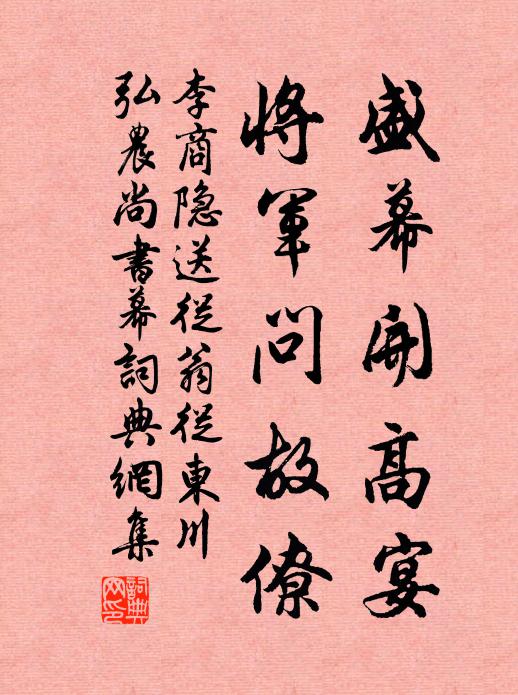 盛幕開高宴
將軍問故僚
李商隐送從翁從東川
弘農尚書幕詞典網集
詞典网印